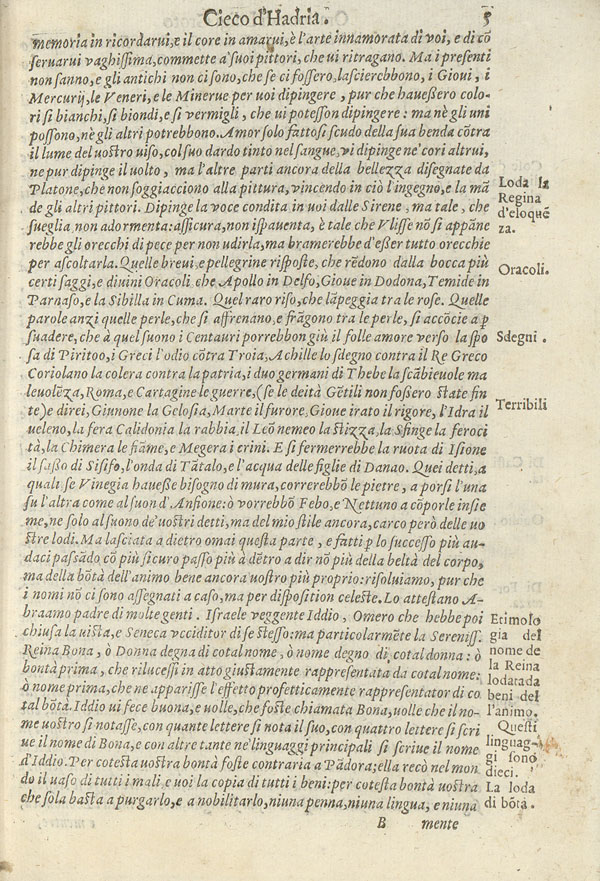 Cieco d'Hadria. 5
memoria in ricordarui, e il core in amarui, è l'arte innamorata di voi, e di cõ
seruarui vaghissima, commette a' suoi pittori, che ui ritragano. Ma i presenti
non sanno, e gli antichi non ci sono, che se ci fossero, lascierebbono, i Gioui, i
Mercurij, le Veneri, e le Minerue per uoi dipingere, pur che haueßero colo-
ri si bianchi, si biondi, e si vermigli, che ui poteßon dipingere: ma nè gli uni
possono, nè gli altri potrebbono. Amor solo fattosi scudo della sua benda cõtra
il lume del uostro uiso, col suo dardo tinto nel sangue, vi dipinge ne' cori altrui,
ne pur dipinge il uolto, ma l'altre parti ancora della bellezza disegnate da
Platone, che non soggiacciono alla pittura, vincendo in ciò l'ingegno, e la mã
de gli altri pittori. Dipinge la voce condita in uoi dalle Sirene, ma tale, che
sueglia, non adormenta: assicura, non ispauenta, è tale che Vlisse nõ si appãne
rebbe gli orecchi di pece per non udirla, ma bramerebbe d'eßer tutto orecchie
per ascoltarla. Quelle breui, e pellegrine risposte, che rẽdono dalla bocca più
certi saggi, e diuini Oracoli che Apollo in Delfo, Gioue in Dodona, Temide in
Parnaso, e la Sibilla in Cuma. Quel raro riso, che lãpeggia tra le rose. Quelle
parole anzi quelle perle, che si affrenano, e frãgono tra le perle, si accõcie a p
suadere, che à quel suono i Centauri porrebbon giù il folle amore verso la spo
sa di Piritoo, i Greci l'odio cõtra Troia, Achille lo sdegno contra il Re Greco
Coriolano la colera contra la patria, i duo germani di Thebe la scãbieuole ma
leuolẽza, Roma, e Cartagine le guerre, (se le deità Gẽtili non foßero state fin
te) e direi, Giunone la Gelosia, Marte il furore, Gioue irato il rigore, l'Idra il
ueleno, la fera Calidonia la rabbia, il Leõ nemeo la stizza, la Sfinge la feroci
tà, la Chimera le fiãme, e Megera i crini. E si fermerrebbe la ruota di Isione
il saßo di Sisifo, l'onda di Tãtalo, e l'acqua delle figlie di Danao. Quei detti, a
quali se Vinegia haueße bisogno di mura, correrebbõ le pietre, a porsi l'una
su l'altra come al suon d'Anfione: ò vorrebbõ Febo, e Nettuno a cõporle insie
me, ne solo al suono de' uostri detti, ma del mio stile ancora, carco però delle uo
stre lodi. Ma lasciata a dietro omai questa parte, e fatti p lo successo più au-
daci passãdo cõ più sicuro passo più à dẽtro a dir nõ più della beltà del corpo,
ma della bõtà dell'animo bene ancora uostro più proprio: risoluiamo, pur che
i nomi nõ ci sono assegnati a caso, ma per disposition celeste. Lo attestano A-
braamo padre di molte genti. Israele veggente Iddio, Omero che hebbe poi
chiusa la uista, e Seneca vcciditor di se stesso: ma particolarmẽte la Sereniss.
Reina Bona, ò Donna degna di cotal nome, ò nome degno di cotal donna: ò
bontà prima, che rilucessi in atto giustamente rappresentata da cotal nome:
ò nome prima, che ne apparisse l'effetto profetticamente rappresentator di co
tal bõtà. Iddio ui fece buona, e uolle, che foste chiamata Bona, uolle che il no-
me uostro si notasse, con quante lettere si nota il suo, con quattro lettere si scri
ue il nome di Bona, e con altre tante ne' linguaggi principali si scriue il nome
d'Iddio. Per cotesta uostra bontà foste contraria a Pãdora; ella recò nel mon
do il uaso di tutti i mali, e uoi la copia di tutti i beni: per cotesta bontà uostra
che sola basta a purgarlo, e a nobilitarlo, niuna penna, niuna lingua, e niuna
B mente
Loda la
Regina
d'eloquẽ
za.
Oracoli.
Sdegni.
Terribili
Etimolo
gia del
nome de
la Reina
lodata da
beni del
l'animo.
Questi
linguag-
gi sono
dieci.
La loda
di bõtà.